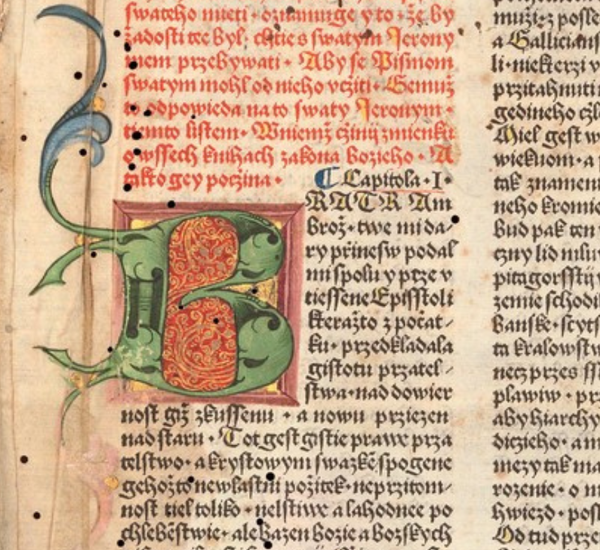 swateho mieti · oznamuge y to · že by
žadosti tee byl, chtie s swatym Jerony
mem przebywati · Aby se Pismom
swatym mohl od nieho vcžiti · Gemuž
to odpowieda na to swaty Jeronym ·
tiemto listem · Wniemž cžinij zmienku
o wssech knihach zakona bozieho · A
takto gey poczina · Capitola · I ·
BRATR Am
brož · twe mi da/
ry przinesw podal
mi spolu y ptze v
tiessene Episstoli
kteražto z počat/
ku · przedkladala
gistotu przatel/
stwa · nad dowier
nost giž zkussenu · a nowu prziezen
nad staru · Tot gest gistie prawe prza
telstwo · a krystowym swazkē spogene
gehožto ne wlastni požitek · neprzitom/
nost tiel toliko · nelstiwe a lahodnee po
chlebēstwie · ale bazen Bozie a Bozskych
mužiez posle
a Gallicians
li · niekterzi v
przitahnuti
gedineho cžl
Miel gest w
wiekuom · a
tak znamen
neho kromie
bud pak ten
czny lid milu
pitagorsstij
zemie schodi
banske · scyts
ta kralowstw
necz przes
plawiw · prz
aby hiarchy
diczieho · a m
mezy tak ma
rozenie · o
hwiezd · pos
Od tud po